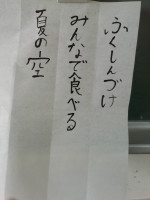 ふくしんづけ
みんなで食べる
夏の空